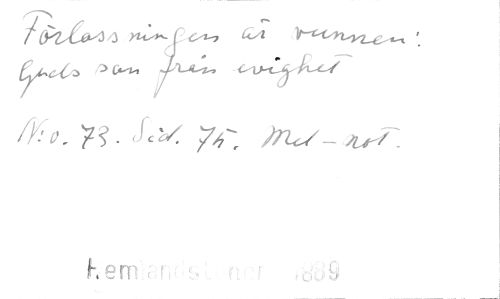 Förlossningen är vunnen!
Guds son från evighet
N:o. 73. Sid. 75. Med - not.
Hemlandstoner 1889